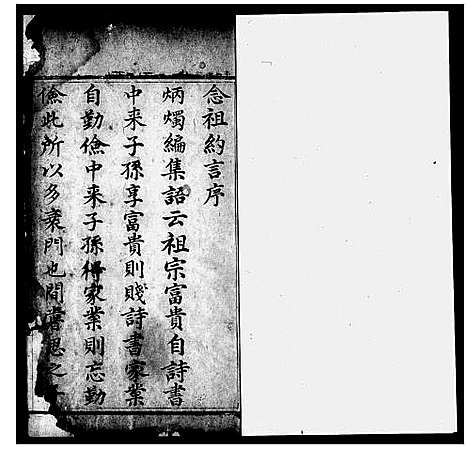 念祖約言序
炳燭編集語云祖宗富貴自詩書
中来子孫享富貴則賤詩書家業
自勤儉中来子孫得家業則忘勤
儉此所以多衰門也間嘗思之